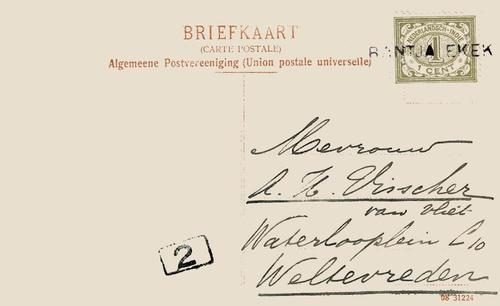 BRIEFKAART
(CARTE POSTALE)
Algemeene Postvereeniging (Union postale universelle)
NEDERLANDSCH-INDIË
1
1 CENT
RANTJA EKEK
Mevrouw
A. H. Visscher
van Vliet
Waterlooplein L 10
Weltevreden
2
08 31224